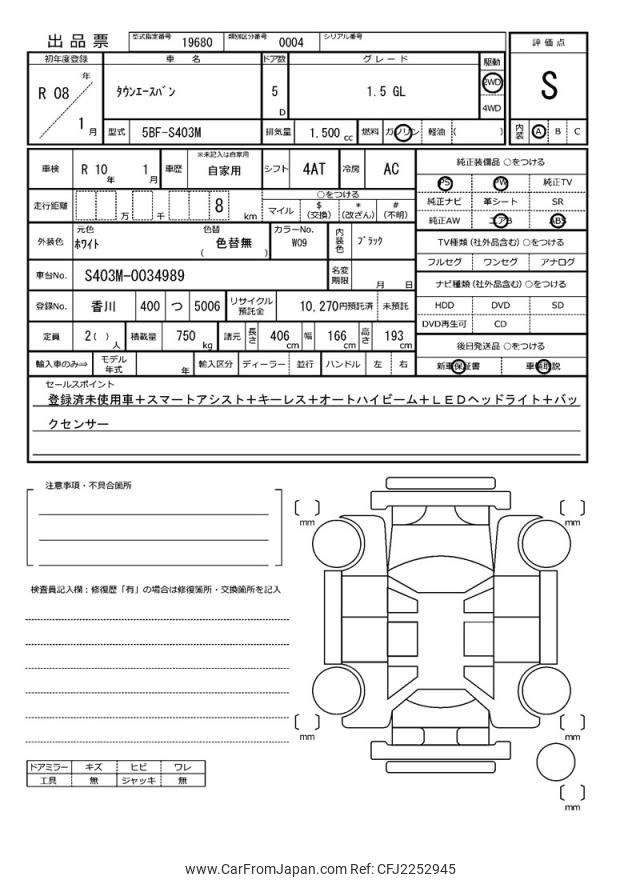 出品票 型式指定番号 19680 類別区分番号 0004 シリアル番号
初年度登録 車名 ドア数 グレード 駆動 評価点
R 08 年 1 月 タウンエースバン 5 D 1.5 GL 2WD 4WD S
型式 5BF-S403M 排気量 1.500 cc 燃料 ガソリン 軽油 ( ) 内装 A B C
車検 R 10 年 1 月 車歴 ※未記入は自家用 自家用 シフト 4AT 冷房 AC 純正装備品 ○をつける
PS PW 純正TV
走行距離 万 千 8 km ○をつける
マイル $ (交換) * (改ざん) # (不明)
純正ナビ 革シート SR
純正AW エアB ABS
外装色 元色 ホワイト 色替 色替無 ( ) カラーNo. W09 内装色 ブラック
TV種類(社外品含む) ○をつける
フルセグ ワンセグ アナログ
車台No. S403M-0034989 名変期限 月 日
ナビ種類(社外品含む) ○をつける
登録No. 香川 400 つ 5006 リサイクル預託金 10,270円預託済 未預託
HDD DVD SD
DVD再生可 CD
定員 2( ) 人 積載量 750 kg 諸元 長さ 406 cm 幅 166 cm 高さ 193 cm
後日発送品 ○をつける
輸入車のみ⇒ モデル年式 年 輸入区分 ディーラー 並行 ハンドル 左 右
新車保証書 車輌取説
セールスポイント
登録済未使用車+スマートアシスト+キーレス+オートハイビーム+LEDヘッドライト+バッ
クセンサー
注意事項・不具合箇所
mm mm
検査員記入欄:修復歴「有」の場合は修復箇所・交換箇所を記入
mm mm
ドアミラー キズ ヒビ ワレ
工具 無 ジャッキ 無
mm
www.CarFromJapan.com Ref: CFJ2252945